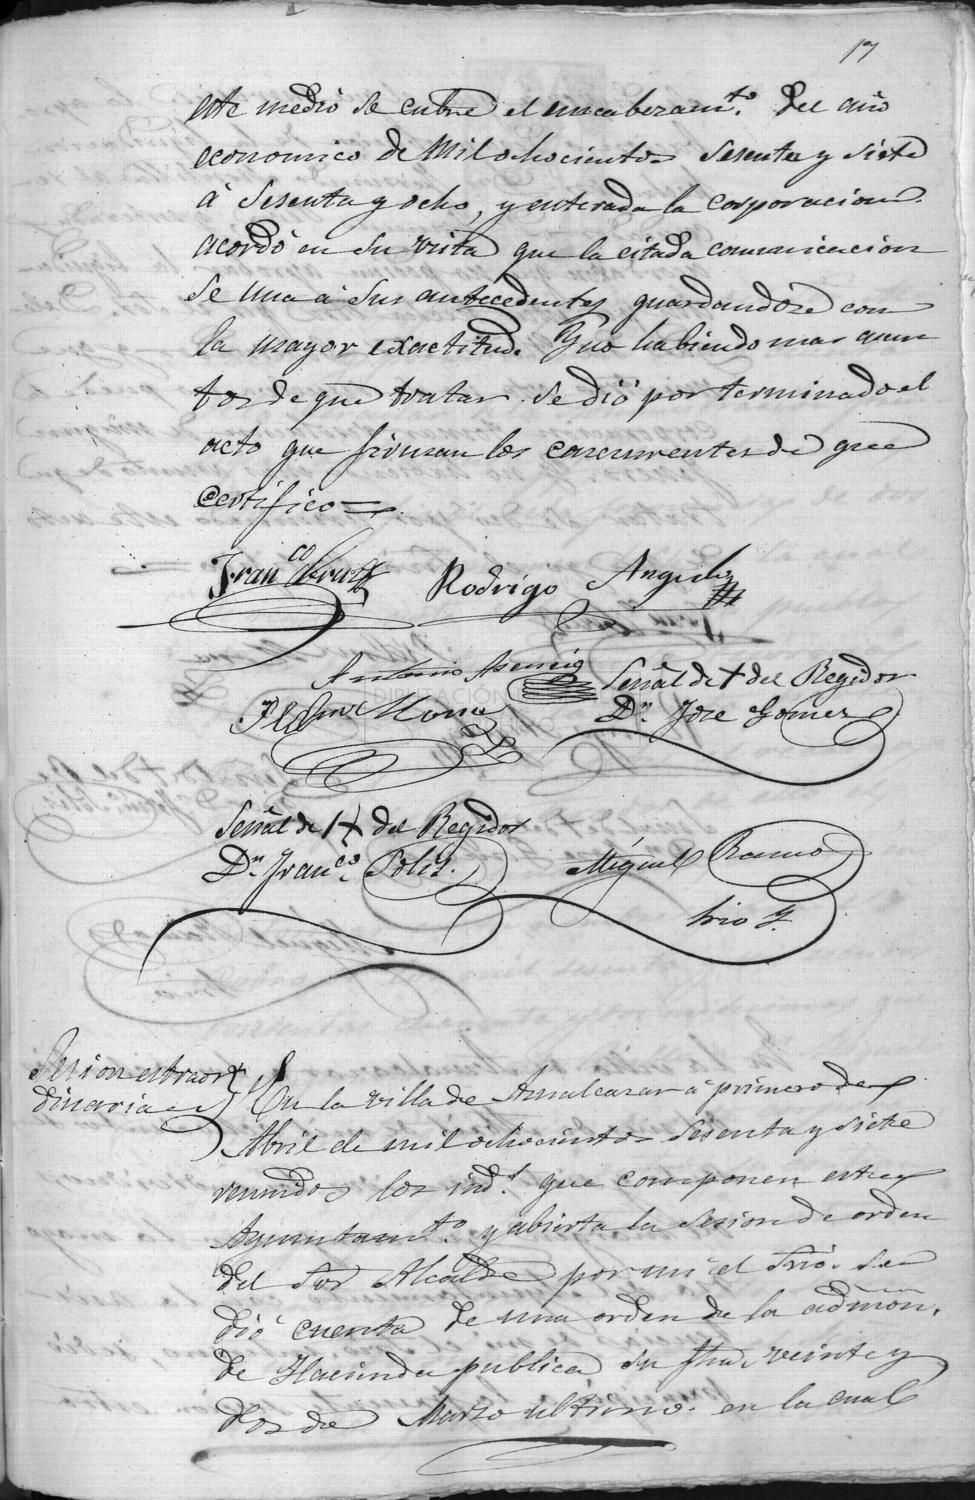 17
este medio se cubre el encabezam.to del año
economico de Mil ochocientos sesenta y siete
á sesenta y ocho, y enterada la corporacion
acordó en su vista que la citada comunicacion
se una á sus antecedentes guardandose con
la mayor exactitud. Y no habiendo mas asun
tos de que tratar se dió por terminado el
acto que firman los concurrentes de que
certifico =
Fran.co Rodrigo Angulo
Antonio Asencio Señal de + del Regidor
Dn. Jose Gomez
Señal de + del Regidor
Dn. Fran.co Solis. Miguel Ramos
Srio
Sesion estraor
dinaria
En la villa de Aznalcazar á primero de
Abril de mil ochocientos sesenta y siete
reunidos los ind.s que componen este
Ayuntam.to y abierta la sesion de orden
del Sor Alcalde por mi el Srio. se
dió cuenta de una orden de la admon.
de Hacienda publica su fha veinte y
dos de Marzo ultimo. en la cual